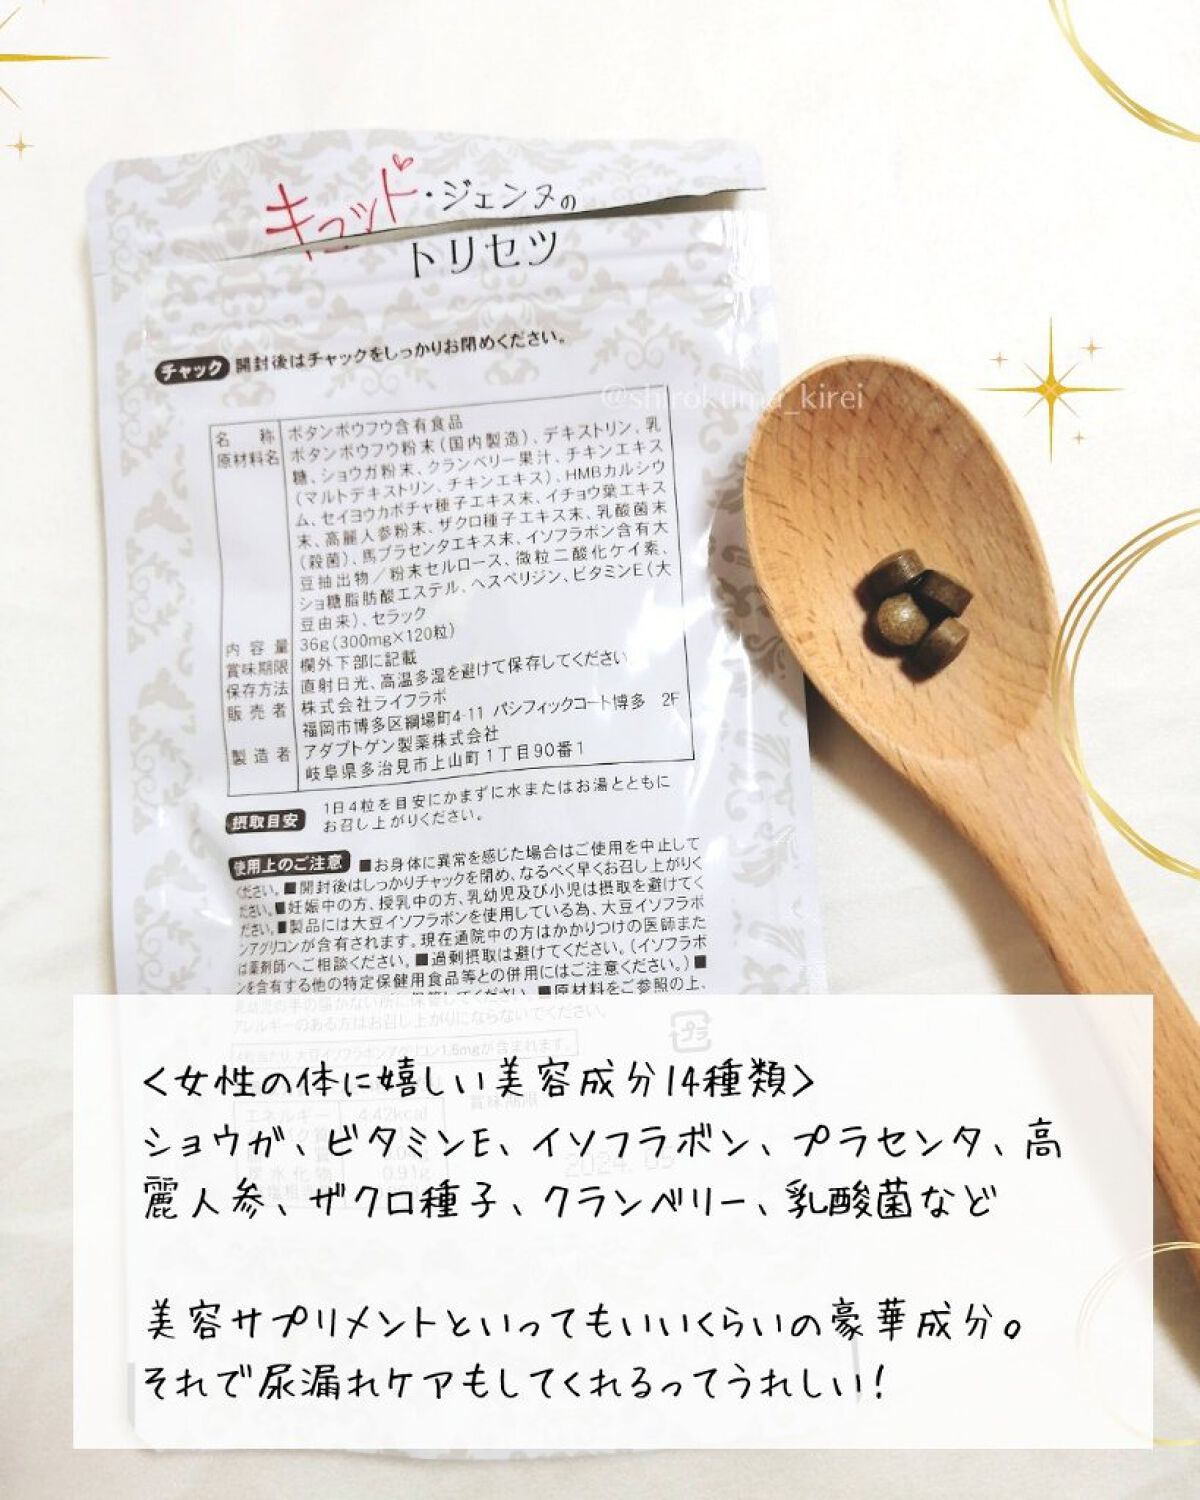 キュッド・ジェンヌの
トリセツ
チャック 開封後はチャックをしっかりお閉めください。
@shirokuma_kirei
名称 ボタンボウフウ含有食品
原材料名 ボタンボウフウ粉末(国内製造)、デキストリン、乳
糖、ショウガ粉末、クランベリー果汁、チキンエキス
(マルトデキストリン、チキンエキス)、HMBカルシウ
ム、セイヨウカボチャ種子エキス末、イチョウ葉エキス
末、高麗人参粉末、ザクロ種子エキス末、乳酸菌末
(殺菌)、馬プラセンタエキス末、イソフラボン含有大
豆抽出物/粉末セルロース、微粒二酸化ケイ素、
ショ糖脂肪酸エステル、ヘスペリジン、ビタミンE(大
豆由来)、セラック
内容量 36g(300mg×120粒)
賞味期限 欄外下部に記載
保存方法 直射日光、高温多湿を避けて保存してください
販売者 株式会社ライフラボ
福岡市博多区綱場町4-11 パシフィックコート博多 2F
製造者 アダプトゲン製薬株式会社
岐阜県多治見市上山町1丁目90番1
摂取目安 1日4粒を目安にかまずに水またはお湯とともに
お召し上がりください。
使用上のご注意 ■お身体に異常を感じた場合はご使用を中止して
ください。■開封後はしっかりチャックを閉め、なるべく早くお召し上がりく
ださい。■妊娠中の方、授乳中の方、乳幼児及び小児は摂取を避けてく
ださい。■製品には大豆イソフラボンを使用している為、大豆イソフラボ
ンアグリコンが含有されます。現在通院中の方はかかりつけの医師また
は薬剤師へご相談ください。■過剰摂取は避けてください。(イソフラボ
ンを含有する他の特定保健用食品等との併用にはご注意ください。)■
乳幼児の手の届かない所に保管してください。■原材料をご参照の上、
アレルギーのある方はお召し上がりにならないでください。
4粒当たり 大豆イソフラボンアグリコン1.6mgが含まれます。
プラ
エネルギー 4.42kcal
賞味期限
炭水化物 0.91g
<女性の体に嬉しい美容成分14種類>
ショウガ、ビタミンE、イソフラボン、プラセンタ、高
麗人参、ザクロ種子、クランベリー、乳酸菌など
美容サプリメントといってもいいくらいの豪華成分。
それで尿漏れケアもしてくれるってうれしい!